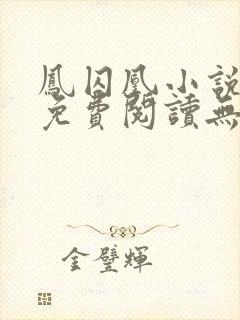 鳳囚凰小說
免費閱讀無
金璧輝